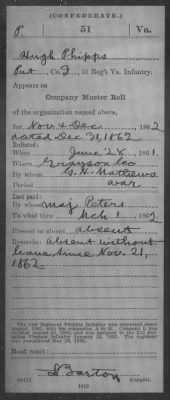 (CONFEDERATE.)
P 51 Va.
Hugh Phipps
Pvt., Co. I, 51 Reg't Va. Infantry.
Appears on
Company Muster Roll
of the organization named above,
for Nov & Dec, 1862
dated Dec 31, 1862
Enlisted:
When June 28, 1861.
Where Grayson Co
By whom G. H. Matthews
Period war
Last paid:
By whom Maj Peters
To what time Mch 1, 1862
Present or absent absent
Remarks: Absent without
leave since Nov. 21,
1862
Book mark:
S Barton
Copyist.